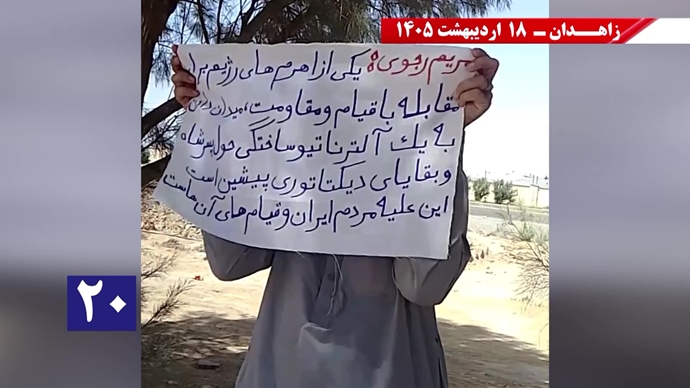 زاهـدان ـ ۱۸ اردیبهشت ۱۴۰۵
مریم رجوی: یکی از اهرم های رژیم برای
مقابله با قیام و مقاومت، میدان دادن
به یک آلترناتیو ساختگی حول پسر شاه
و بقایای دیکتاتوری پیشین است
این علیه مردم ایران و قیام های آن هاست
۲۰